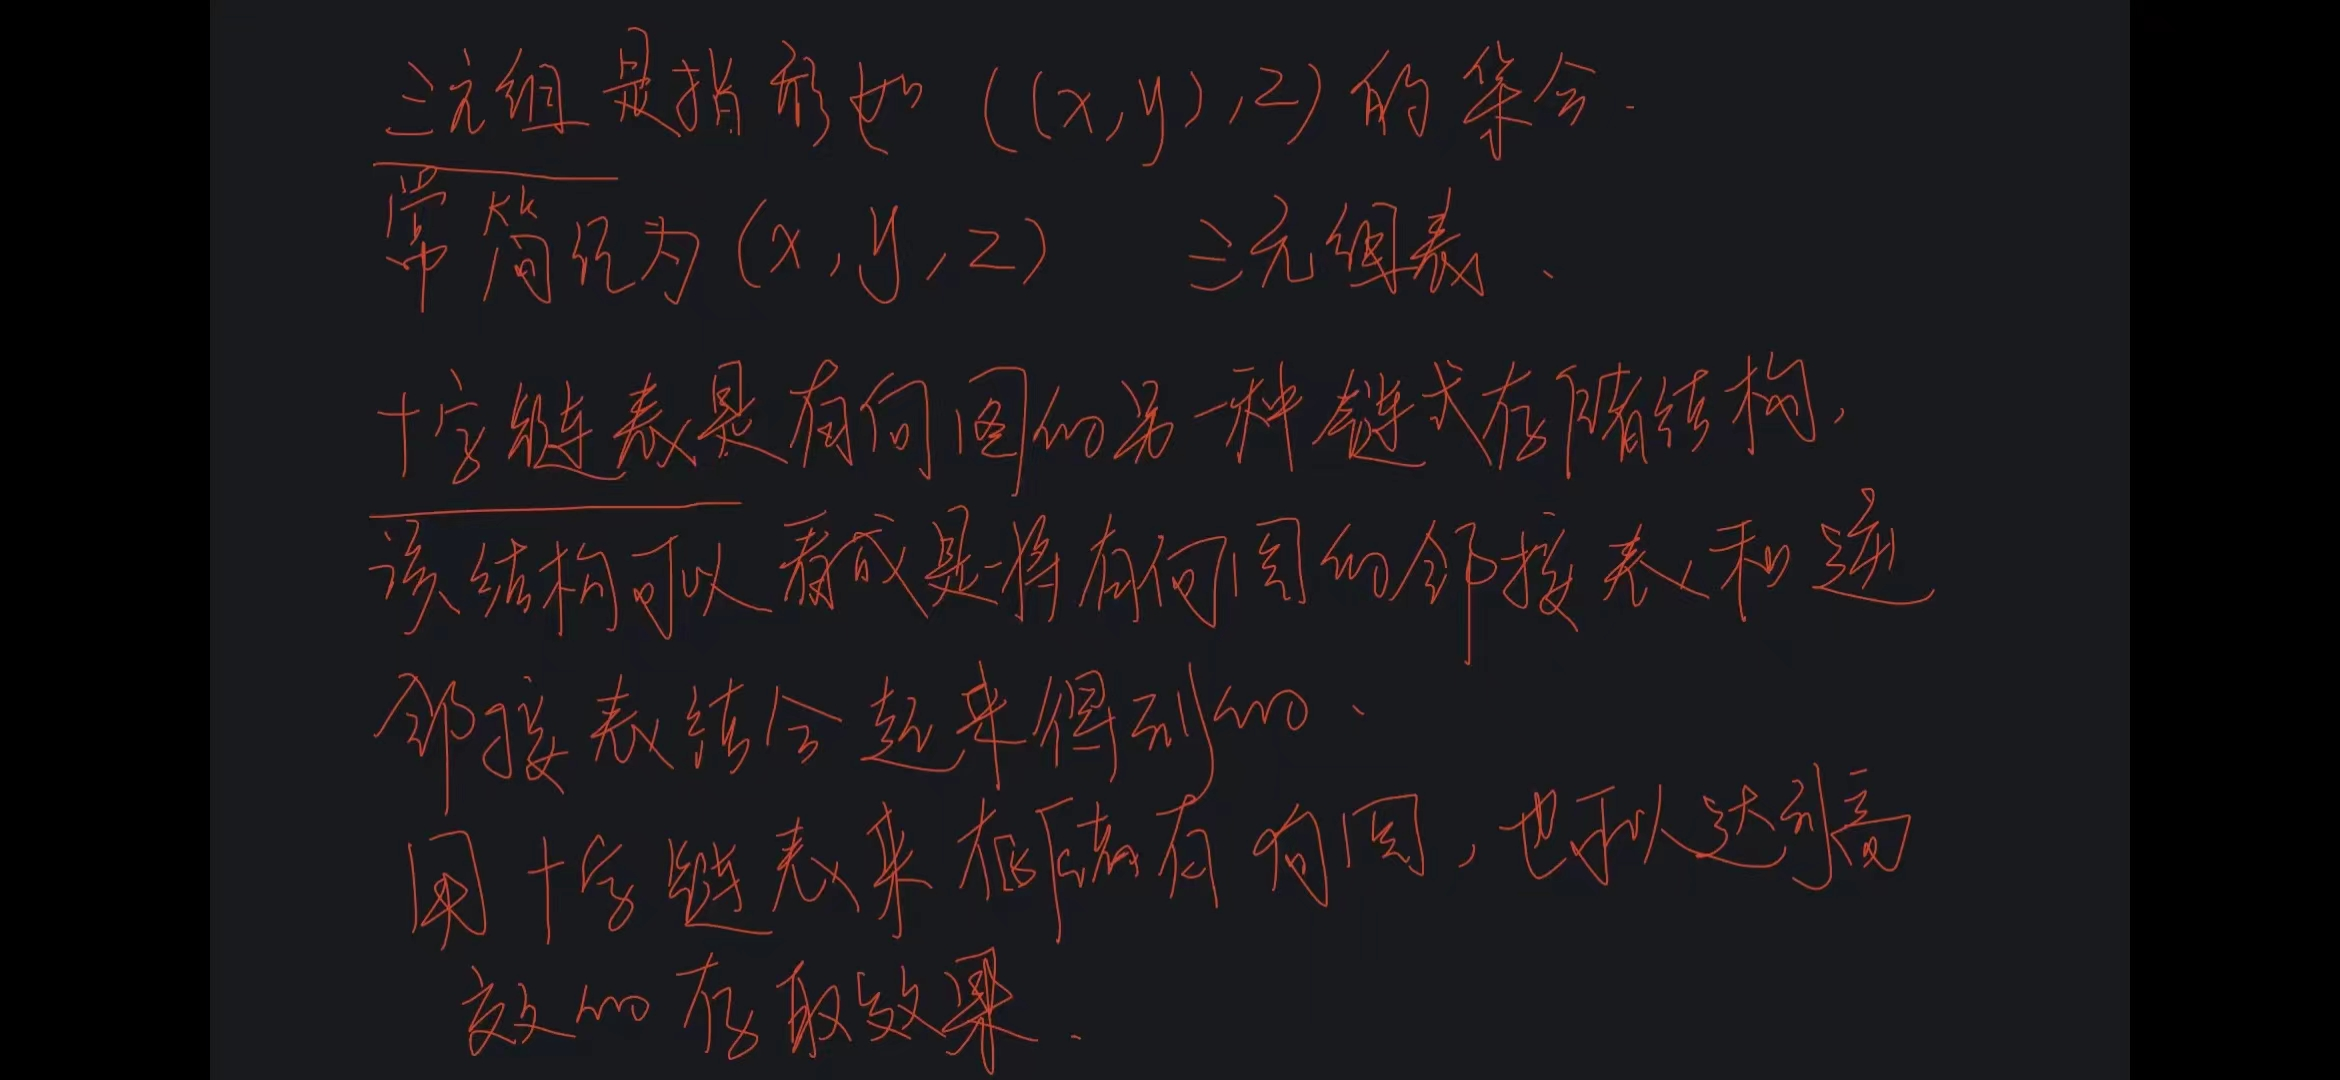 三元组是指形如 ((x,y),z) 的集合.
常简记为 (x,y,z) 三元组表、
十字链表是有向图的另一种链式存储结构,
该结构可以看成是将有向图的邻接表和逆
邻接表结合起来得到的、
用十字链表来存储有向图,也可以达到高
效的存取效果.